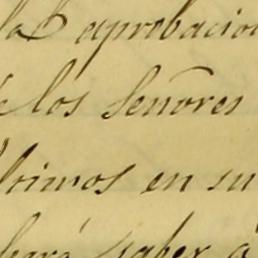 la aprobacion
de los Señores
ltimos en su
hará saber á